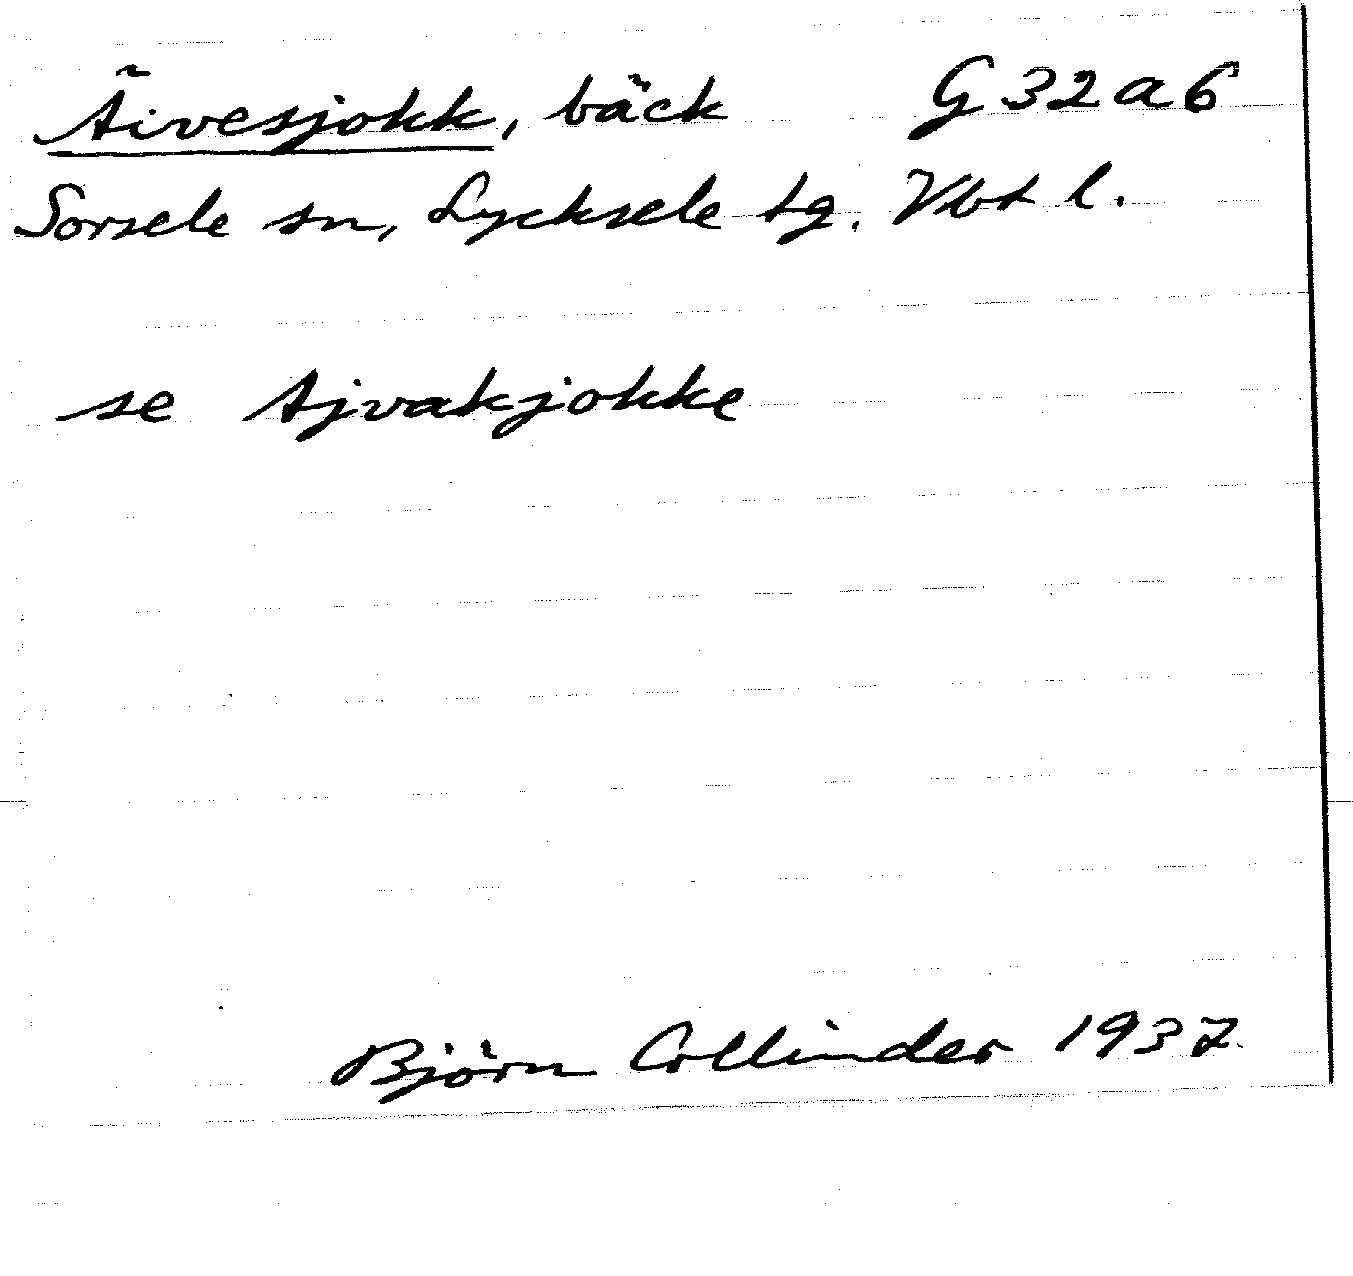 Äivesjokk, bäck G32a6
Sorsele sn, Lycksele tg. Vbt l.
se Ajvakjokke
Björn Collinder 1937